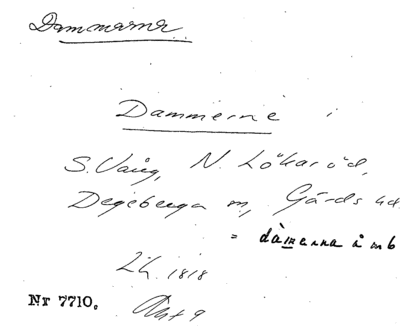 Dammarna
Dammerne i
S. Vång, N. Lökaröd,
Degeberga m, Gärds hd.
= dàmerna i mb
LH. 1818
Nr 7710.
Akt 9